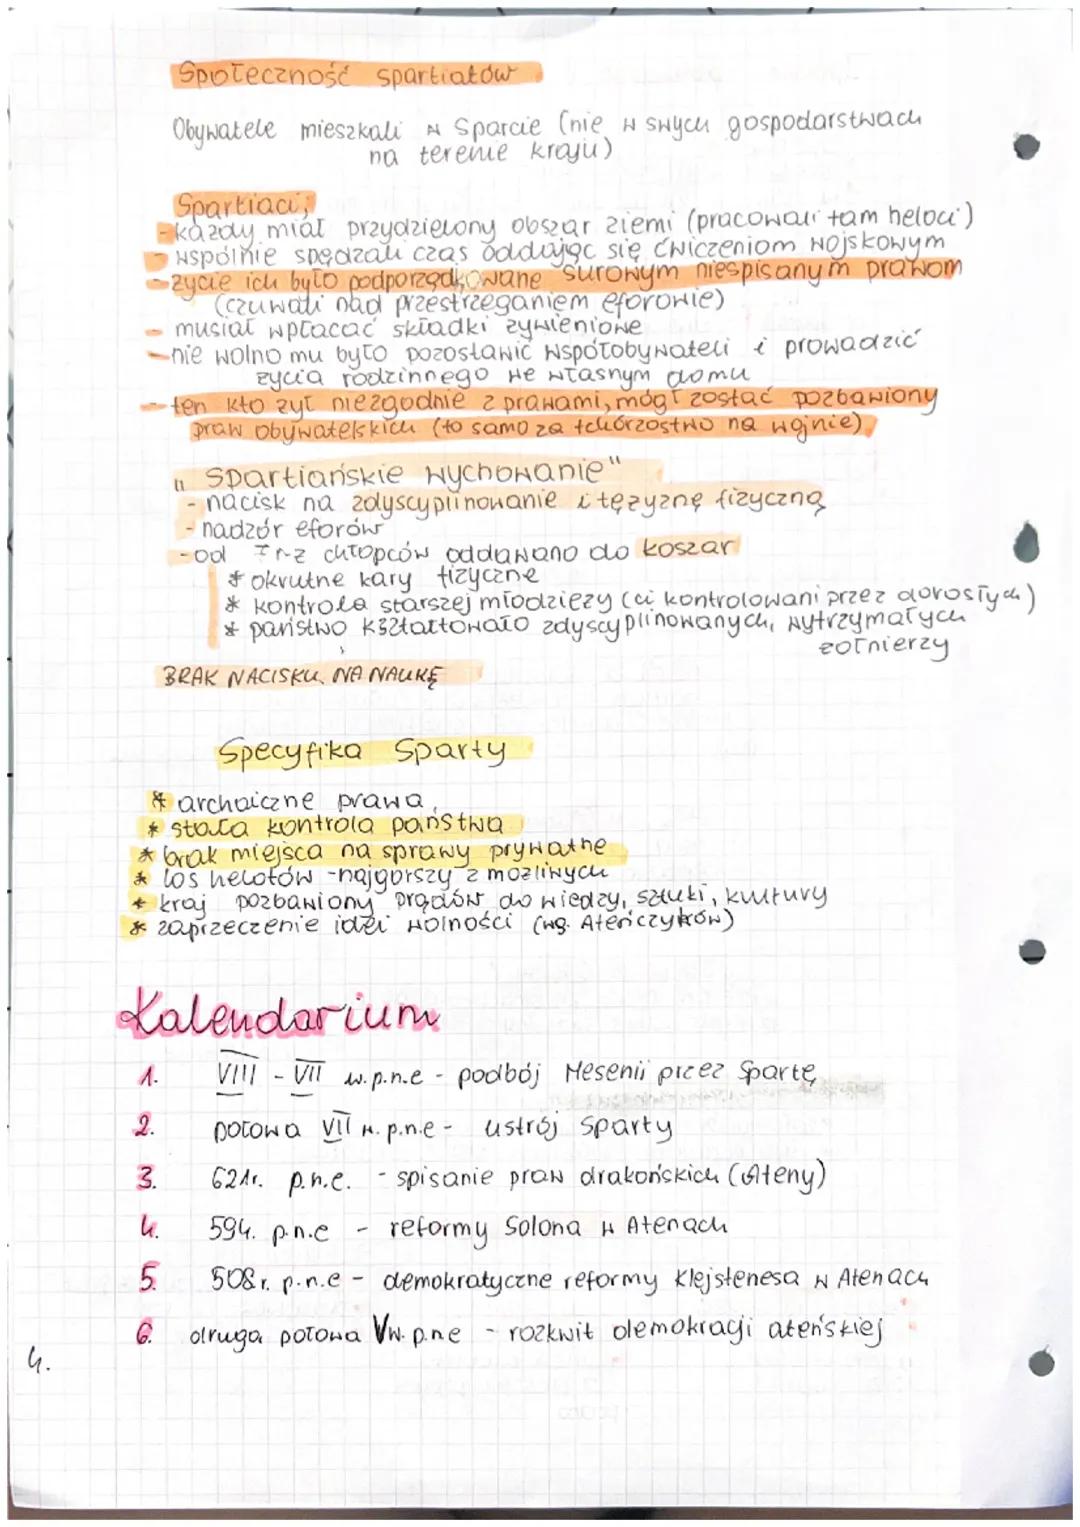 Społeczność spartiatów
Obywatele mieszkali w Sparcie (nie w swych gospodarstwach
na terenie kraju)
Spartiaci;
- każdy miał przydzielony obszar ziemi (pracowali tam heloci)
- wspólnie spędzali czas oddając się ćwiczeniom wojskowym
- życie ich było podporządkowane surowym niespisanym prawom
(czuwali nad przestrzeganiem eforowie)
- musiał wpłacać składki żywieniowe
- nie wolno mu było pozostawić współobywateli i prowadzić
życia rodzinnego we własnym domu
- ten kto żył niezgodnie z prawami, mógł zostać pozbawiony
praw obywatelskich (to samo za tchórzostwo na wojnie)
"Spartiańskie wychowanie"
- nacisk na zdyscyplinowanie i tężyznę fizyczną
- nadzór eforów
- od 7 r-ż chłopców oddawano do koszar
* okrutne kary fizyczne
* kontrola starszej młodzieży (ci kontrolowani przez dorosłych)
* państwo kształtowało zdyscyplinowanych, wytrzymałych
żołnierzy
BRAK NACISKU NA NAUKĘ
Specyfika Sparty
* archaiczne prawa
* stała kontrola państwa
* brak miejsca na sprawy prywatne
* los helotów - najgorszy z możliwych
* kraj pozbawiony prądów do wiedzy, sztuki, kultury
* zaprzeczenie idei wolności (wg. Ateńczyków)
Kalendarium
1. VIII - VII w.p.n.e - podbój Mesenii przez Spartę
2. połowa VII w. p.n.e - ustrój Sparty
3. 621r. p.n.e. - spisanie praw drakońskich (Ateny)
4. 594. p.n.e - reformy Solona w Atenach
5. 508r. p.n.e - demokratyczne reformy Klejstenesa w Atenach
6. druga połowa V w. p.n.e - rozkwit demokracji ateńskiej
4.